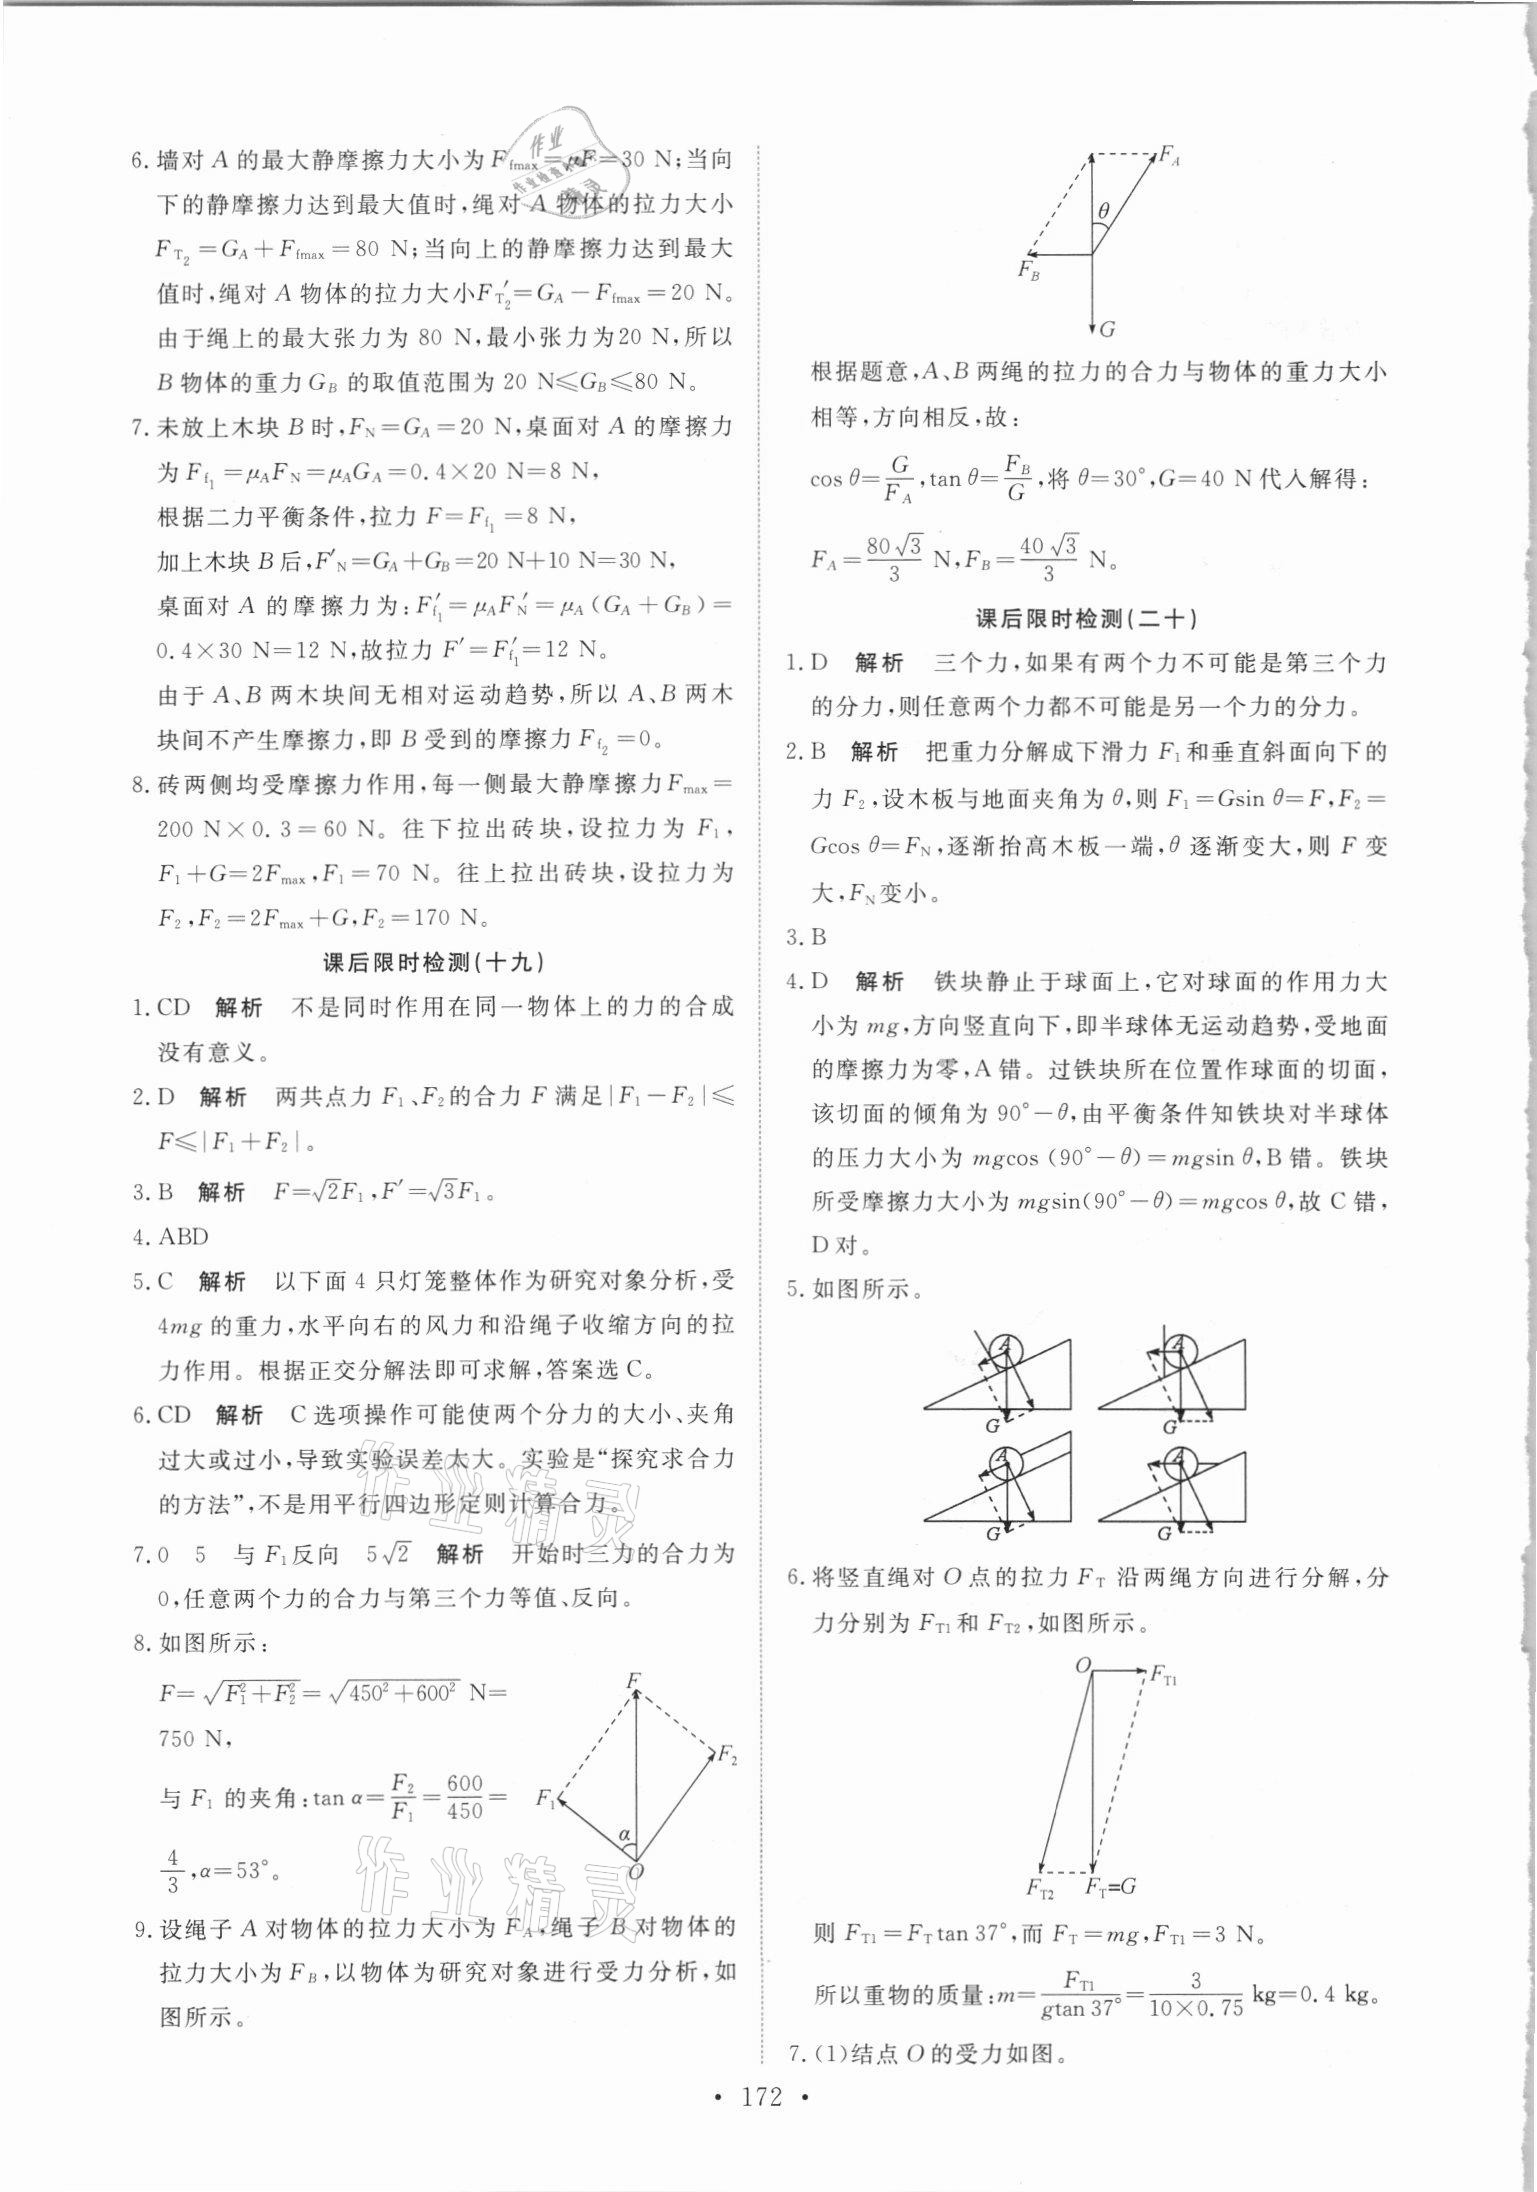 6. 墙对 A 的最大静摩擦力大小为 F_fmax=μF=30 N;当向
下的静摩擦力达到最大值时,绳对 A 物体的拉力大小
F_T₂=G_A+F_fmax=80 N;当向上的静摩擦力达到最大
值时,绳对 A 物体的拉力大小F′_T₂=G_A-F_fmax=20 N。
由于绳上的最大张力为 80 N,最小张力为20 N,所以
B 物体的重力 G_B 的取值范围为 20 N≤G_B≤80 N。
7. 未放上木块 B 时,F_N=G_A=20 N,桌面对 A 的摩擦力
为 F_f₁=μ_AF_N=μ_AG_A=0.4×20 N=8 N,
根据二力平衡条件,拉力 F=F_f₁=8 N,
加上木块 B 后,F′_N=G_A+G_B=20 N+10 N=30 N,
桌面对 A 的摩擦力为:F′_f₁=μ_AF′_N=μ_A(G_A+G_B)=
0.4×30 N=12 N,故拉力 F′=F′_f₁=12 N。
由于 A、B 两木块间无相对运动趋势,所以 A、B 两木
块间不产生摩擦力,即 B 受到的摩擦力 F_f₂=0。
8. 砖两侧均受摩擦力作用,每一侧最大静摩擦力F_max=
200 N×0.3=60 N。往下拉出砖块,设拉力为 F₁,
F₁+G=2F_max,F₁=70 N。往上拉出砖块,设拉力为
F₂,F₂=2F_max+G,F₂=170 N。
课后限时检测(十九)
1. CD 解析 不是同时作用在同一物体上的力的合成
没有意义。
2. D 解析 两共点力 F₁、F₂的合力 F 满足|F₁-F₂|≤
F≤|F₁+F₂|。
3. B 解析 F=√2F₁,F′=√3F₁。
4. ABD
5. C 解析 以下面 4 只灯笼整体作为研究对象分析,受
4mg 的重力,水平向右的风力和沿绳子收缩方向的拉
力作用。根据正交分解法即可求解,答案选 C。
6. CD 解析 C 选项操作可能使两个分力的大小、夹角
过大或过小,导致实验误差太大。实验是“探究求合力
的方法”,不是用平行四边形定则计算合力。
7. 0 5 与 F₁反向 5√2 解析 开始时三力的合力为
0,任意两个力的合力与第三个力等值、反向。
8. 如图所示:
F=√(F₁²+F₂²)=√(450²+600²) N=
750 N,
与 F₁ 的夹角:tan α=F₂/F₁=600/450=
4/3,α=53°。
F
F₂
F₁
α
O
9. 设绳子 A 对物体的拉力大小为 F_A,绳子 B 对物体的
拉力大小为 F_B,以物体为研究对象进行受力分析,如
图所示。
F_A
θ
F_B
G
根据题意,A、B 两绳的拉力的合力与物体的重力大小
相等,方向相反,故:
cos θ=G/F_A,tan θ=F_B/G,将 θ=30°,G=40 N代入解得:
F_A=80√3/3 N,F_B=40√3/3 N。
课后限时检测(二十)
1. D 解析 三个力,如果有两个力不可能是第三个力
的分力,则任意两个力都不可能是另一个力的分力。
2. B 解析 把重力分解成下滑力 F₁和垂直斜面向下的
力 F₂,设木板与地面夹角为 θ,则 F₁=Gsin θ=F,F₂=
Gcos θ=F_N,逐渐抬高木板一端,θ 逐渐变大,则 F 变
大,F_N变小。
3. B
4. D 解析 铁块静止于球面上,它对球面的作用力大
小为 mg,方向竖直向下,即半球体无运动趋势,受地面
的摩擦力为零,A 错。过铁块所在位置作球面的切面,
该切面的倾角为 90°-θ,由平衡条件知铁块对半球体
的压力大小为 mgcos (90°-θ)=mgsin θ,B 错。铁块
所受摩擦力大小为 mgsin(90°-θ)=mgcos θ,故 C 错,
D 对。
5. 如图所示。
A
G
A
G
A
G
A
G
6. 将竖直绳对 O 点的拉力 F_T 沿两绳方向进行分解,分
力分别为 F_T1和 F_T2,如图所示。
O
F_T1
F_T2
F_T=G
则 F_T1=F_Ttan 37°,而 F_T=mg,F_T1=3 N。
所以重物的质量:m=F_T1/gtan 37°=3/10×0.75 kg=0.4 kg。
7. (1)结点 O 的受力如图。
• 172 •
作业
作业检查小助手
精灵
作业精灵
作业精灵